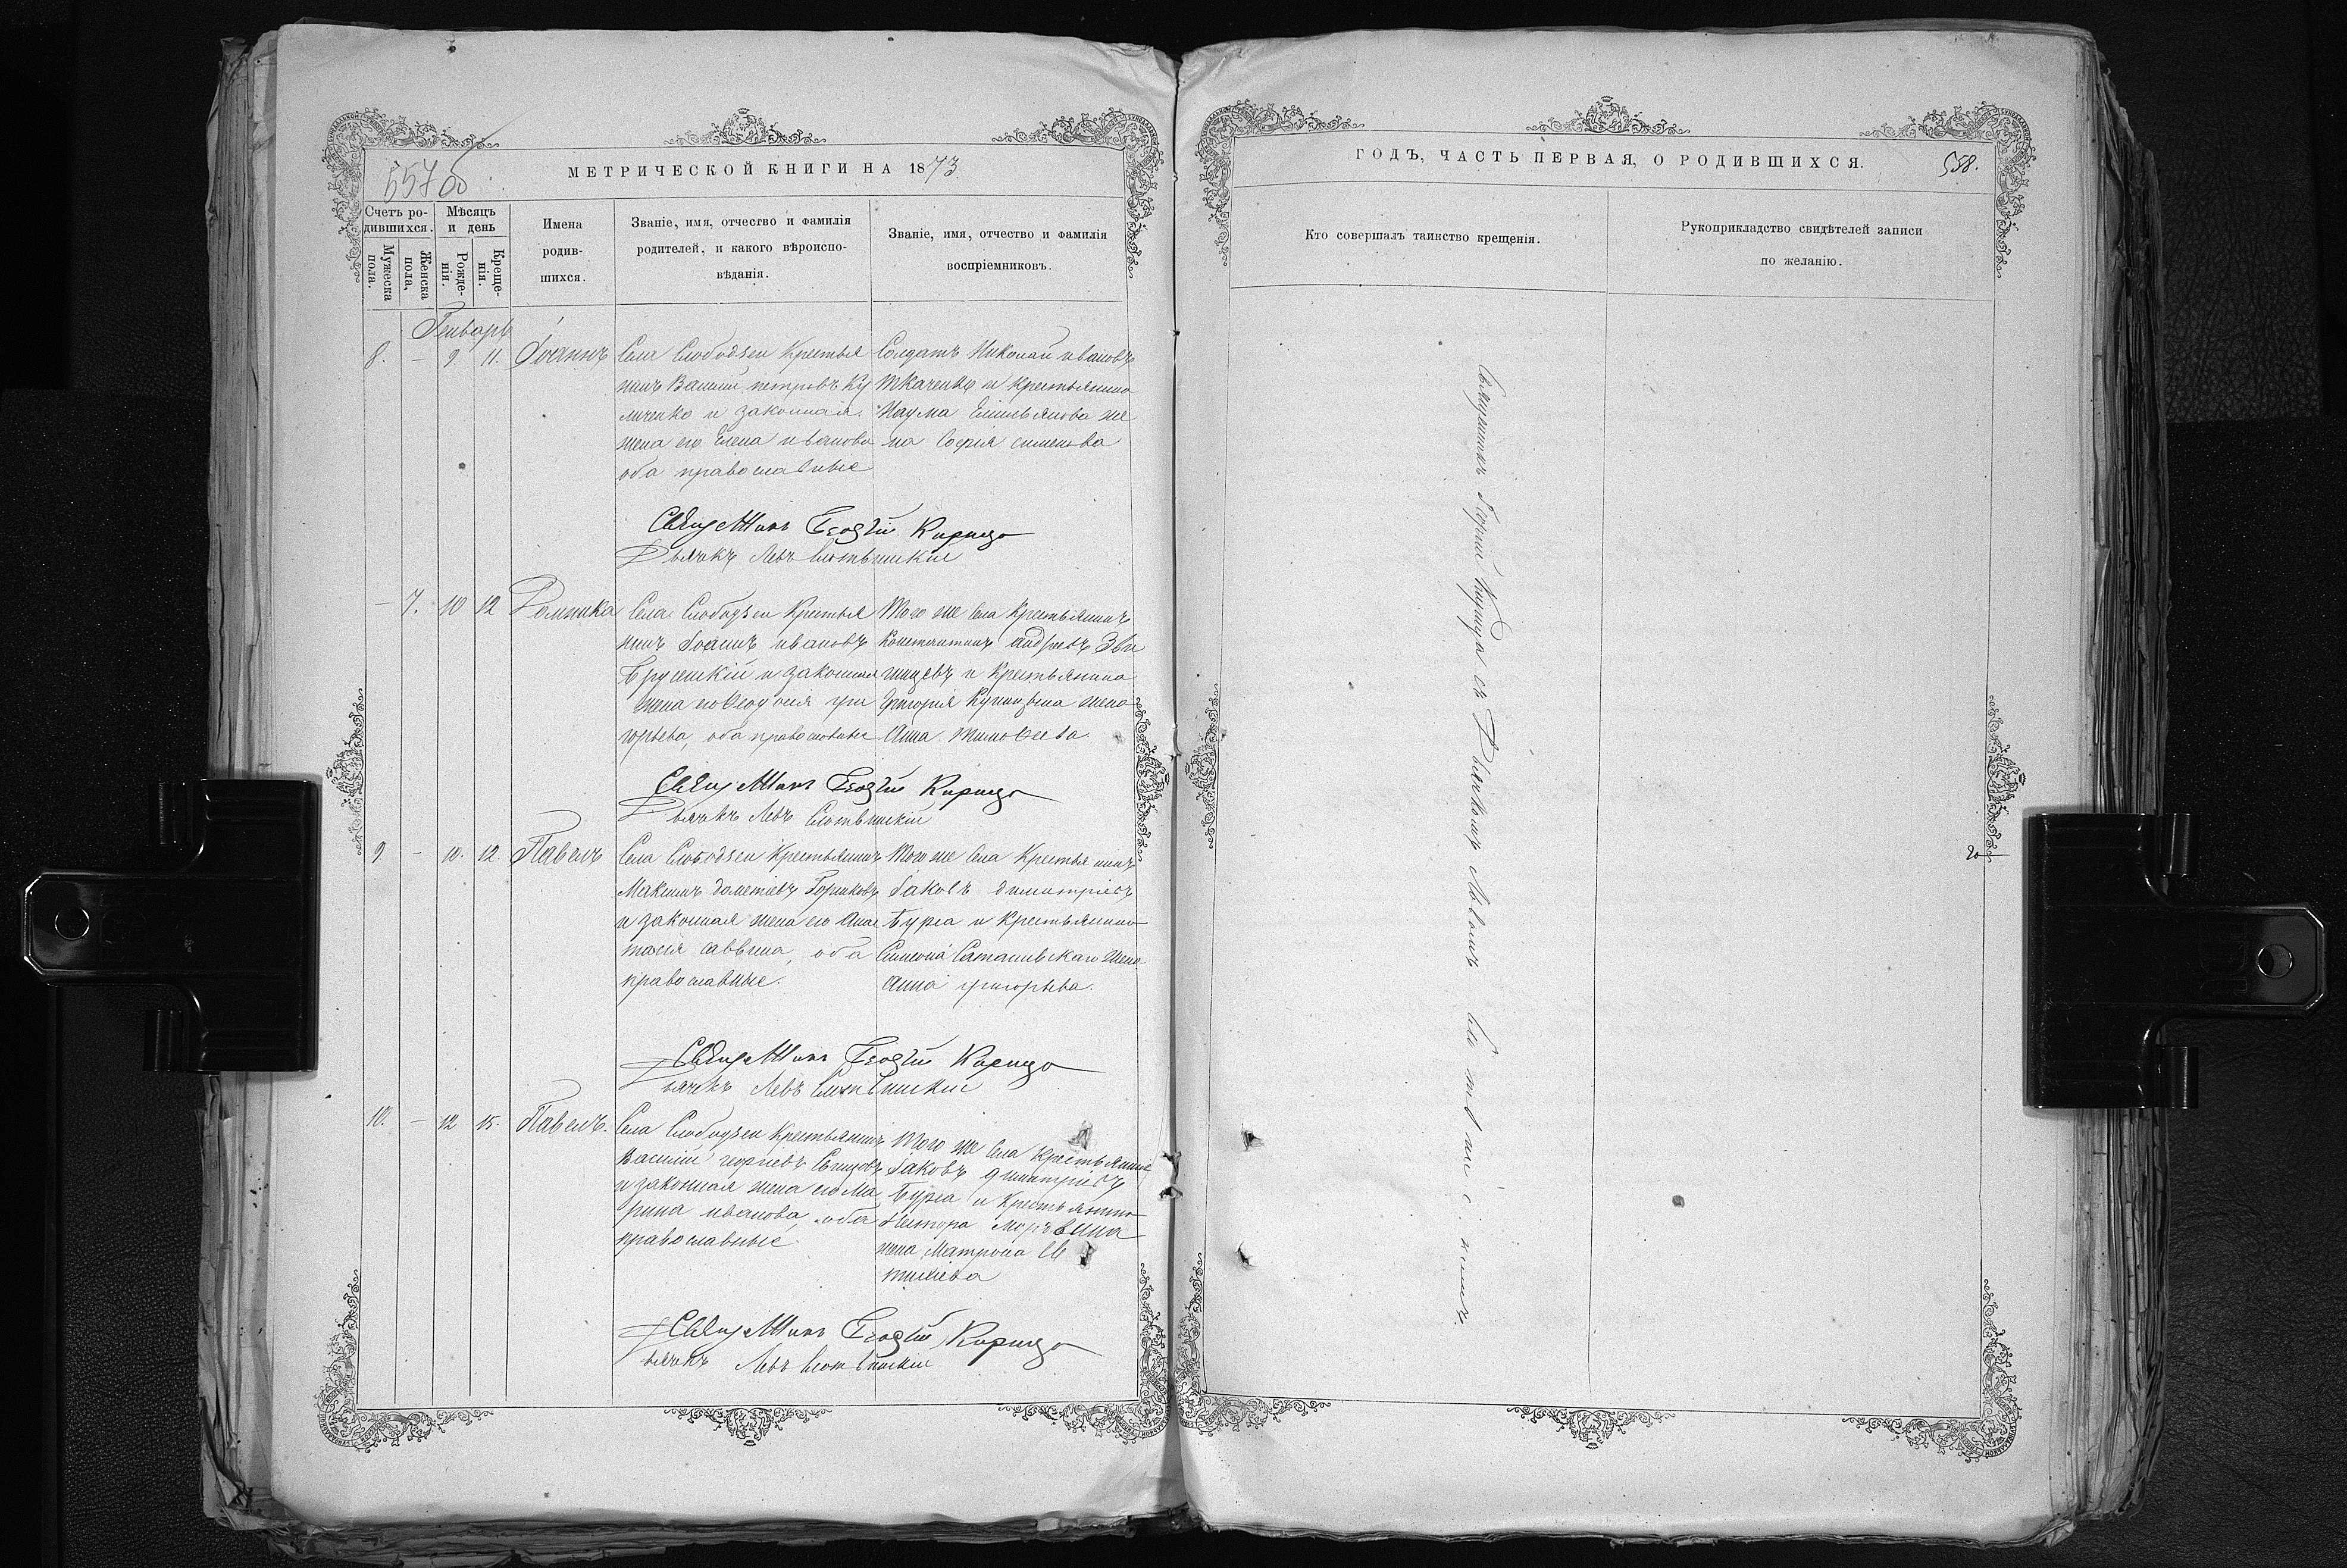 557об
МЕТРИЧЕСКОЙ КНИГИ НА 1873
Счетъ ро-
дившихся.
Мужеска
пола.
Женска
пола,
Мѣсяцъ
и день
Рожде-
нія.
Креще-
нія.
Имена
родив-
шихся.
Званіе, имя, отчество и фамилія
родителей, и какого вѣроиспо-
вѣданія.
Званіе, имя, отчество и фамилія
воспріемниковъ.
Генварь
8. – 9. 11. Іоаннъ
Села Слободзеи Крестья
нинъ Василій петровъ Ку
личенко и законная
жена его Елена иванова
оба православные
Солдатъ Николай ивановъ
Ткаченко и крестьянина
Наума Емильянова же
на Софія сименова
Священникъ Георгій Кирица
Дьячекъ Левъ Слотвинскій
– 7. 10 12 Домника
Села Слободзеи Крестья
нинъ Іоаннъ ивановъ
Брусенскій и законная
жена его Ѳеодосія гри
горьева, оба православные
Того же Села Крестьянинъ
Константинъ андреевъ Зви
нцевъ и Крестьянина
Григорія Куницына жена
Анна тимоѳеева.
Священникъ Георгій Кирица
Дьячекъ Левъ Слотвинскій
9. – 10. 12. Павелъ
Села Слободзеи Крестьянинъ
Максимъ дометіевъ Горшковъ
и законная жена его Анас
тасія саввина, оба
православные.
Того же Села Крестья нинъ
Іаковъ димитріевъ
Бурла и Крестьянина
Симеона Сатановскаго жена
анна григорьева.
Священникъ Георгій Кирица
Дьячекъ Левъ Слотвинскій
10. – 12 15. Павелъ.
Села Слободзеи Крестьянинъ
Василій георгіевъ
и законная жена его Ма
рина иванова, оба
православные
Того же Села Крестьянинъ
Іаковъ димитріевъ
Бурла и Крестьянина
Нестора
жена Матрона Ев
тихіева
Священникъ Георгій Кирица
Дьячекъ Левъ Слотвинскій
ГОДЪ, ЧАСТЬ ПЕРВАЯ, О РОДИВШИХСЯ.
558.
Кто совершалъ таинство крещенія.
Рукоприкладство свидѣтелей записи
по желанію.
Священникъ Георгій Кирица съ Дьячкомъ Львомъ Слотвинскимъ.